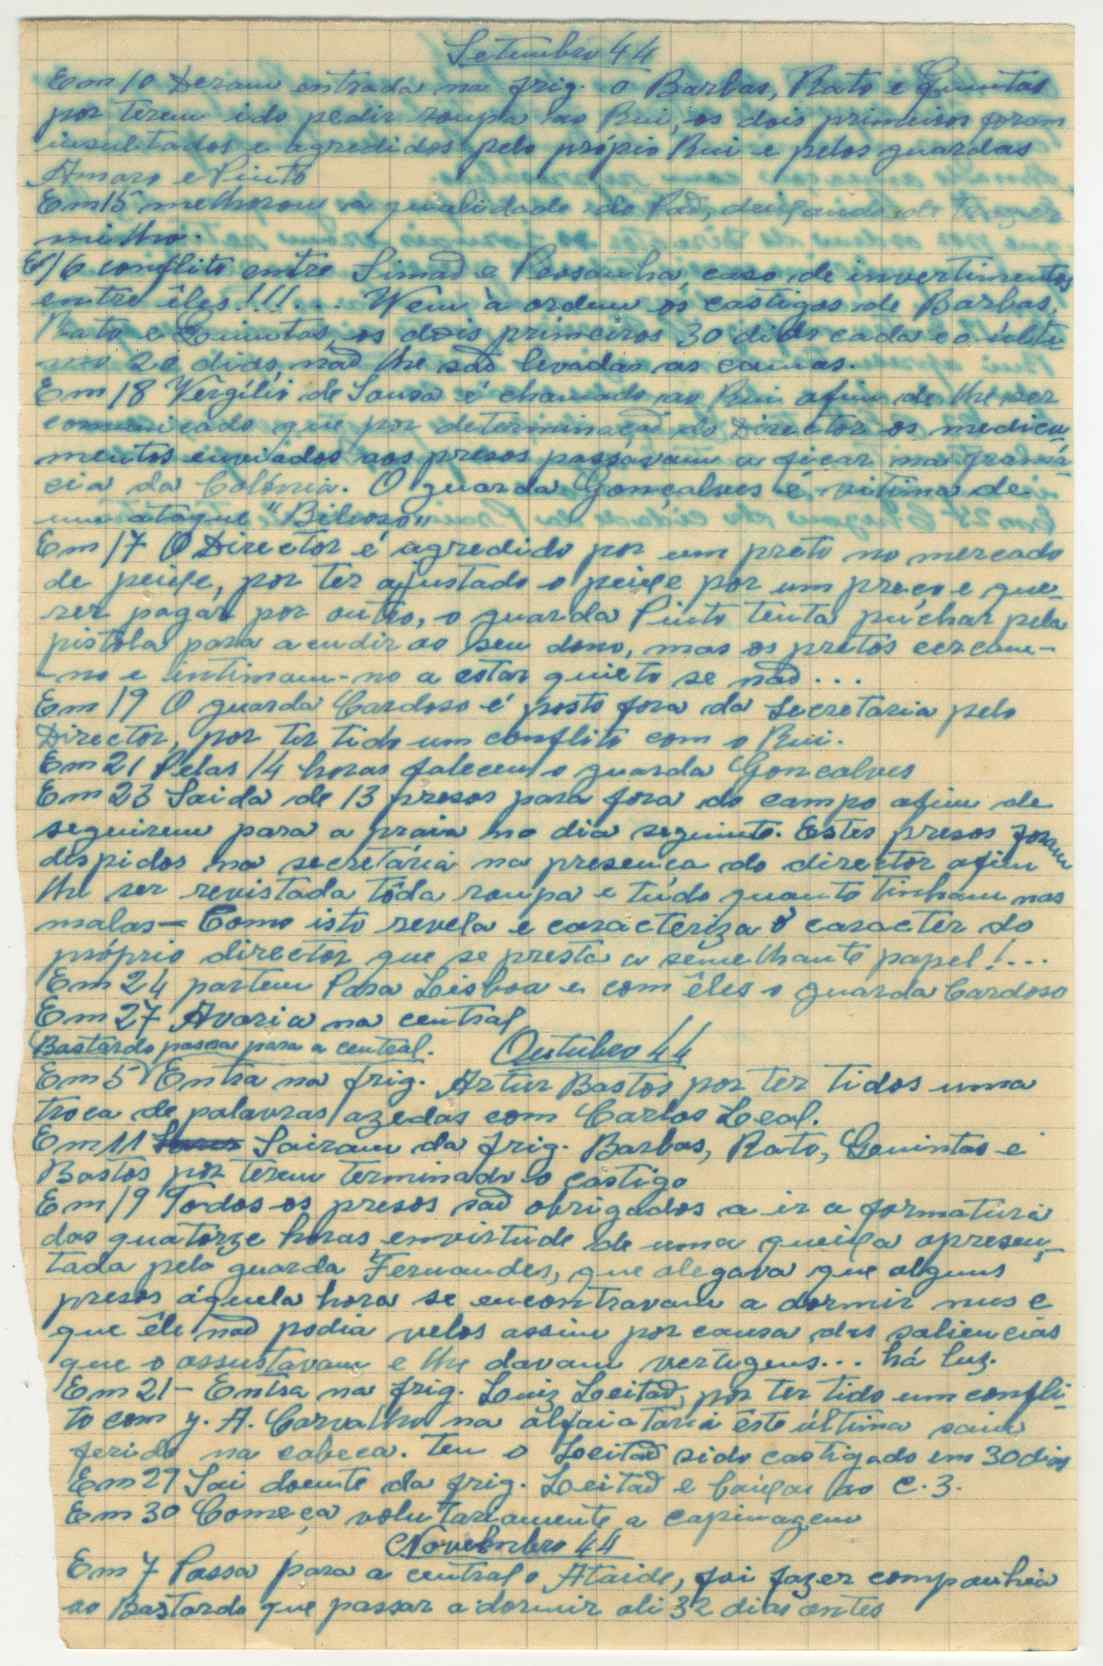 Setembro 44
Em 10 Deram entrada na frig. o Barbas, Rato e Quintas
por terem ido pedir roupa ao Rui, os dois primeiros foram
insultados e agredidos pelo próprio Rui e pelos guardas
Amaro e Pinto
Em 15 melhorou a qualidade do Paõ, deixando de trazer
milho.
E/16 conflito entre Simaõ e Pessanha, caso de invertimentos
entre êles!!!... Vem à ordem os castigos de Barbas,
Rato e Quintas, os dois primeiros 30 dias cada e o últi
mo 20 dias, naõ lhe saõ levadas as camas.
Em 18 Vergílio de Sousa é chamado ao Rui afim de lhe ser
comunicado que por determinaçaõ do Director os medica
mentos enviados aos presos passavam a ficar na framá
cia da Colónia. O guarda Gonçalves é vitima de
um ataque "Bilioso"
Em 17 O Director é agredido por um preto no mercado
de peixe, por ter ajustado o peixe por um preço e que-
rer pagar por outro, o guarda Pinto tenta puchar pela
pistola para acudir ao seu dono, mas os pretos cercam-
-no e intimam-no a estar quieto se naõ...
Em 19 O guarda Cardoso é posto fora da secretaria pelo
Director, por ter tido um conflito com o Rui.
Em 21 Pelas 14 horas faleceu o guarda Gonçalves
Em 23 Saida de 13 presos para fora do campo afim de
seguirem para a praia no dia seguinte. Estes presos foram
despidos na secretária na presença do director afim
lhe ser revistada tôda roupa e tudo quanto tinham nas
malas – Como isto revela e caracteriza o caracter do
próprio director que se presta a semelhante papel!...
Em 24 partem Para Lisboa e com êles o guarda Cardoso
Em 27 Avaria na central
Bastardo passa para a central. Outubro 44
Em 5 Entra na frig. Artur Bastos por ter tidos uma
troca de palavras azedas com Carlos Leal.
Em 11 Sairam da frig. Barbas, Rato, Quintas e
Bastos por terem terminado o castigo
Em 19 Todos os presos saõ obrigados a ir a formatura
das quatorze horas em virtude de uma queixa apresen-
tada pelo guarda Fernandes, que alegava que alguns
presos àquela hora se encontravam a dormir nus e
que êle naõ podia velos assim por causa das saliencias
que o assustavam e lhe davam vertigens... há luz.
Em 21 – Entra na frig. Luiz Leitaõ, por ter tido um confli-
to com J. A. Carvalho na alfaiataria êste última saiu
ferido na cabeça. Tem o Leitaõ sido castigado em 30 dias
Em 27 Sai doente da frig. Leitaõ e baixou ao C. 3.
Em 30 Começa voluntariamente a capinagem
Novembro 44
Em 7 Passa para a central o Ataide, foi fazer companhia
ao Bastardo que passar a dormir ali 32 dias antes